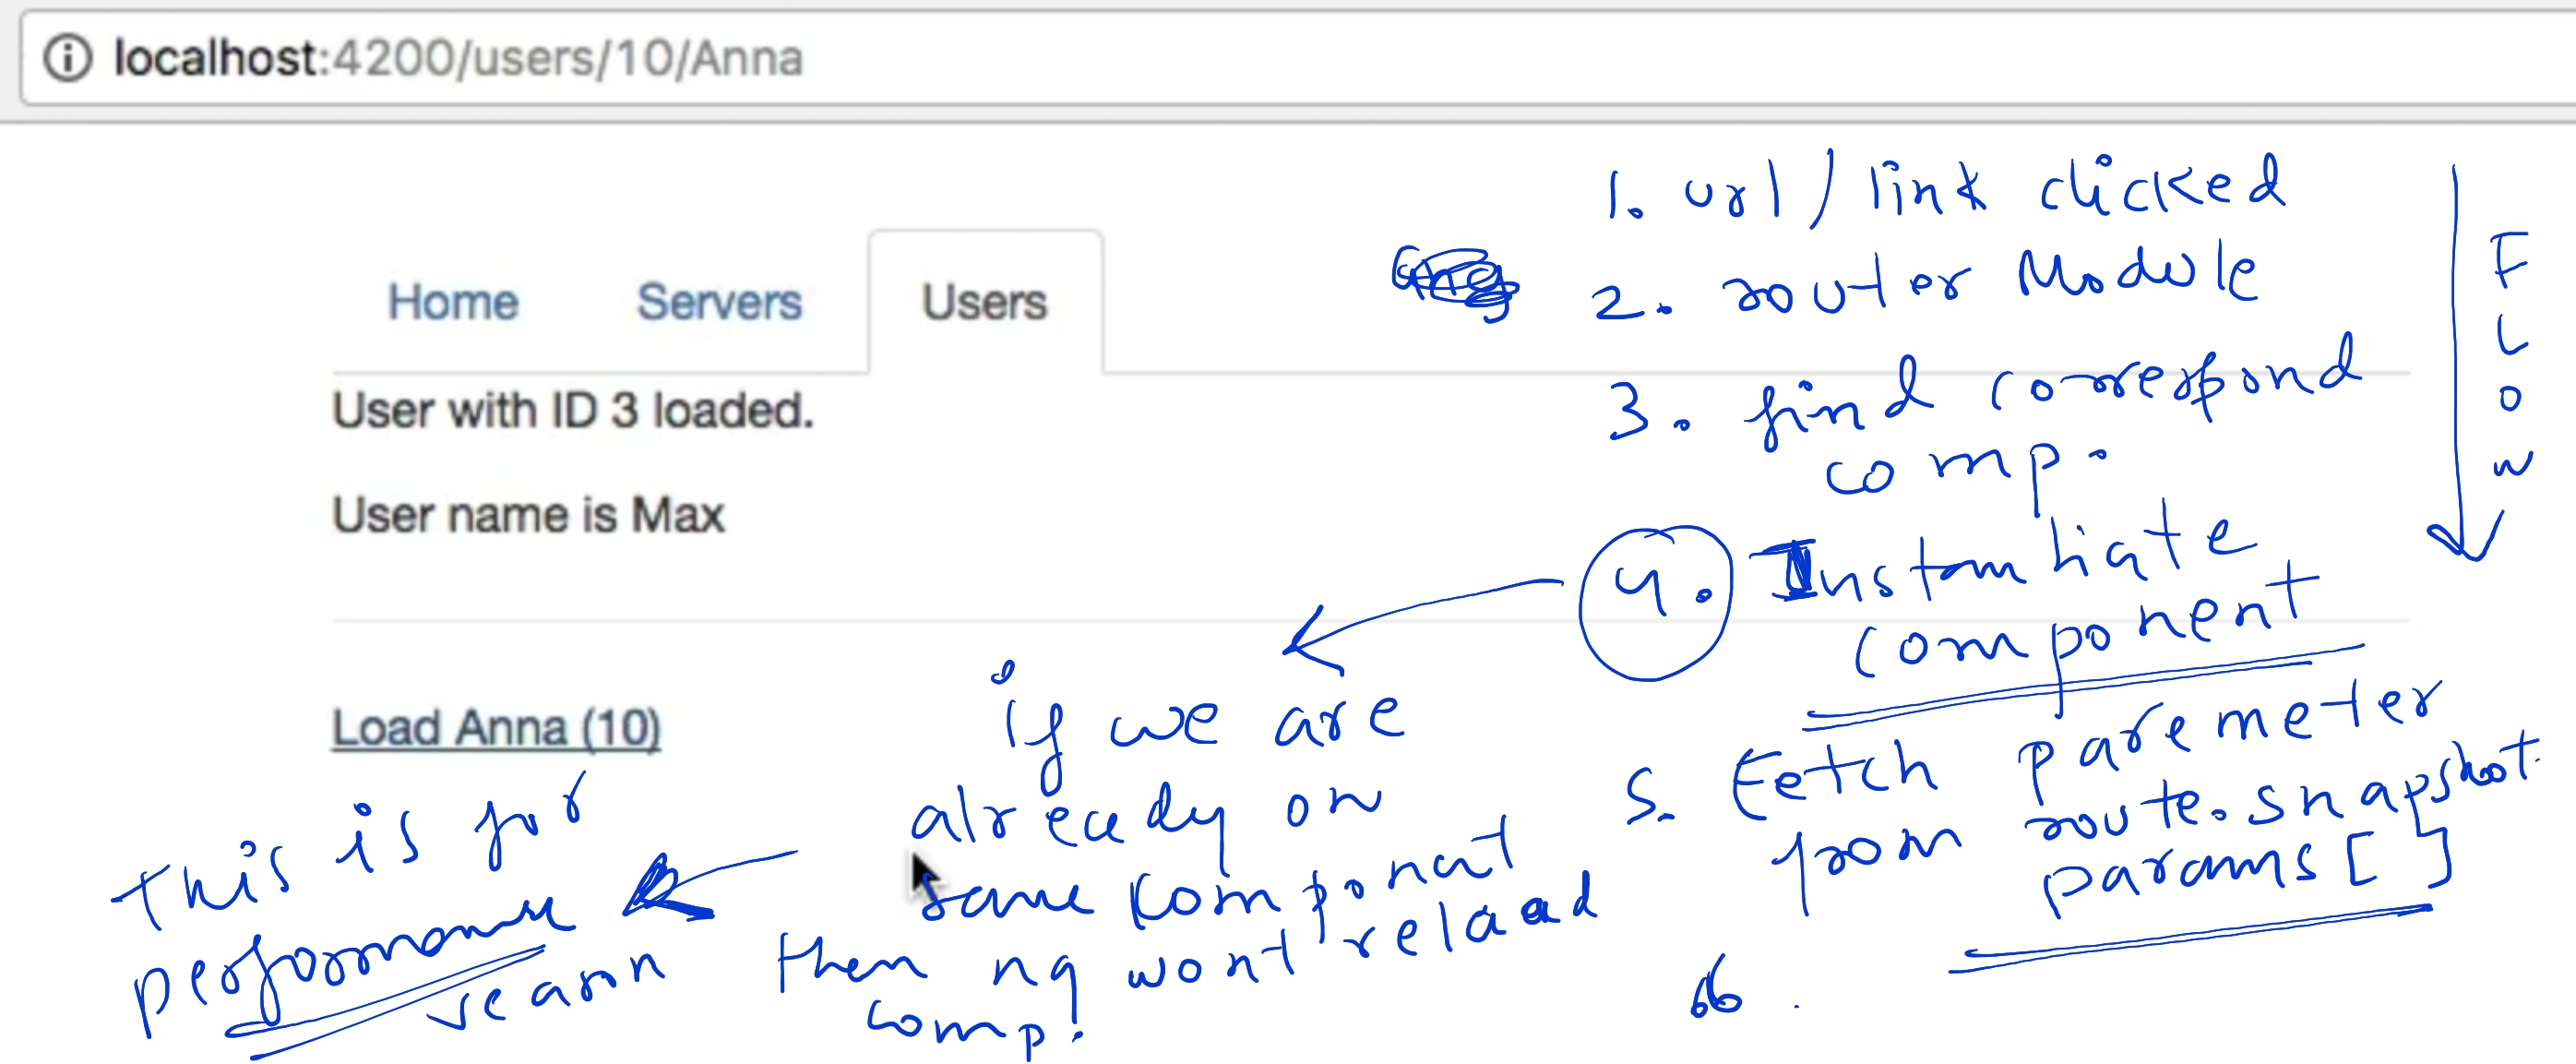 localhost:4200/users/10/Anna
Home Servers Users
User with ID 3 loaded.
User name is Max
Load Anna (10)
1. url / link clicked
2. router Module
3. find correspond
comp.
4. Instantiate
component
5. Fetch paremeter
from route.snapshot.
params[ ]
6.
FLOW
if we are
already on
same component
then ng wont reload
comp!
This is for
performance
reason